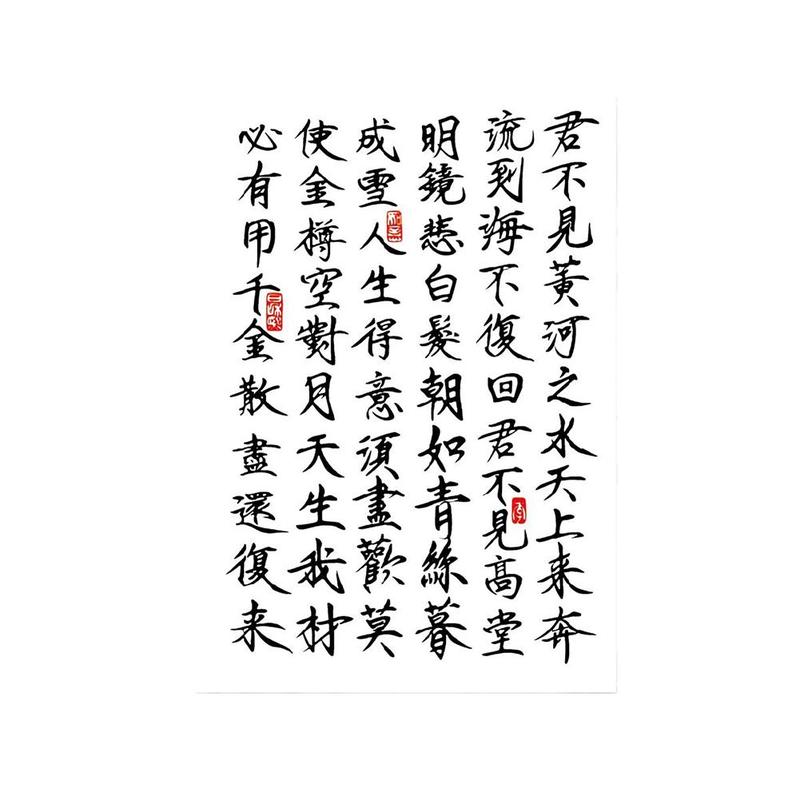 君不見黄河之水天上来奔
流到海不復回君不見髙堂
明鏡悲白髮朝如青絲暮
成雪人生得意須盡歡莫
使金樽空對月天生我材
必有用千金散盡還復来